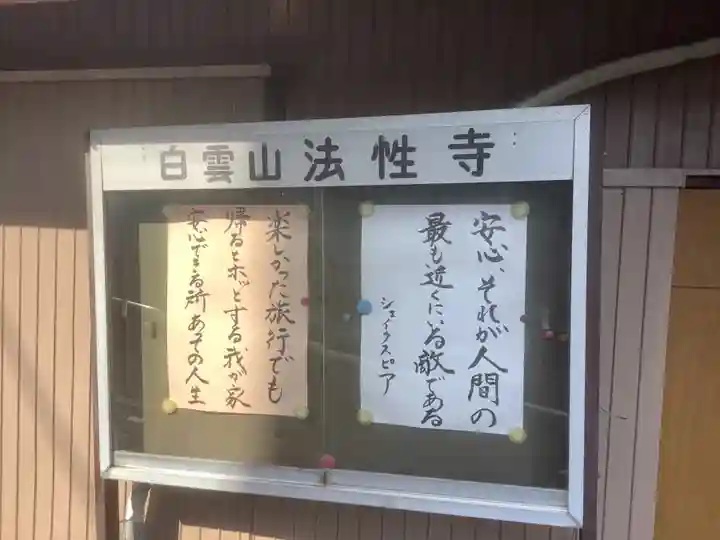 白雲山法性寺
安心、それが人間の
最も近くにいる敵である
シェイクスピア
楽しかった旅行でも
帰るとホッとする我が家
安心できる所あっての人生